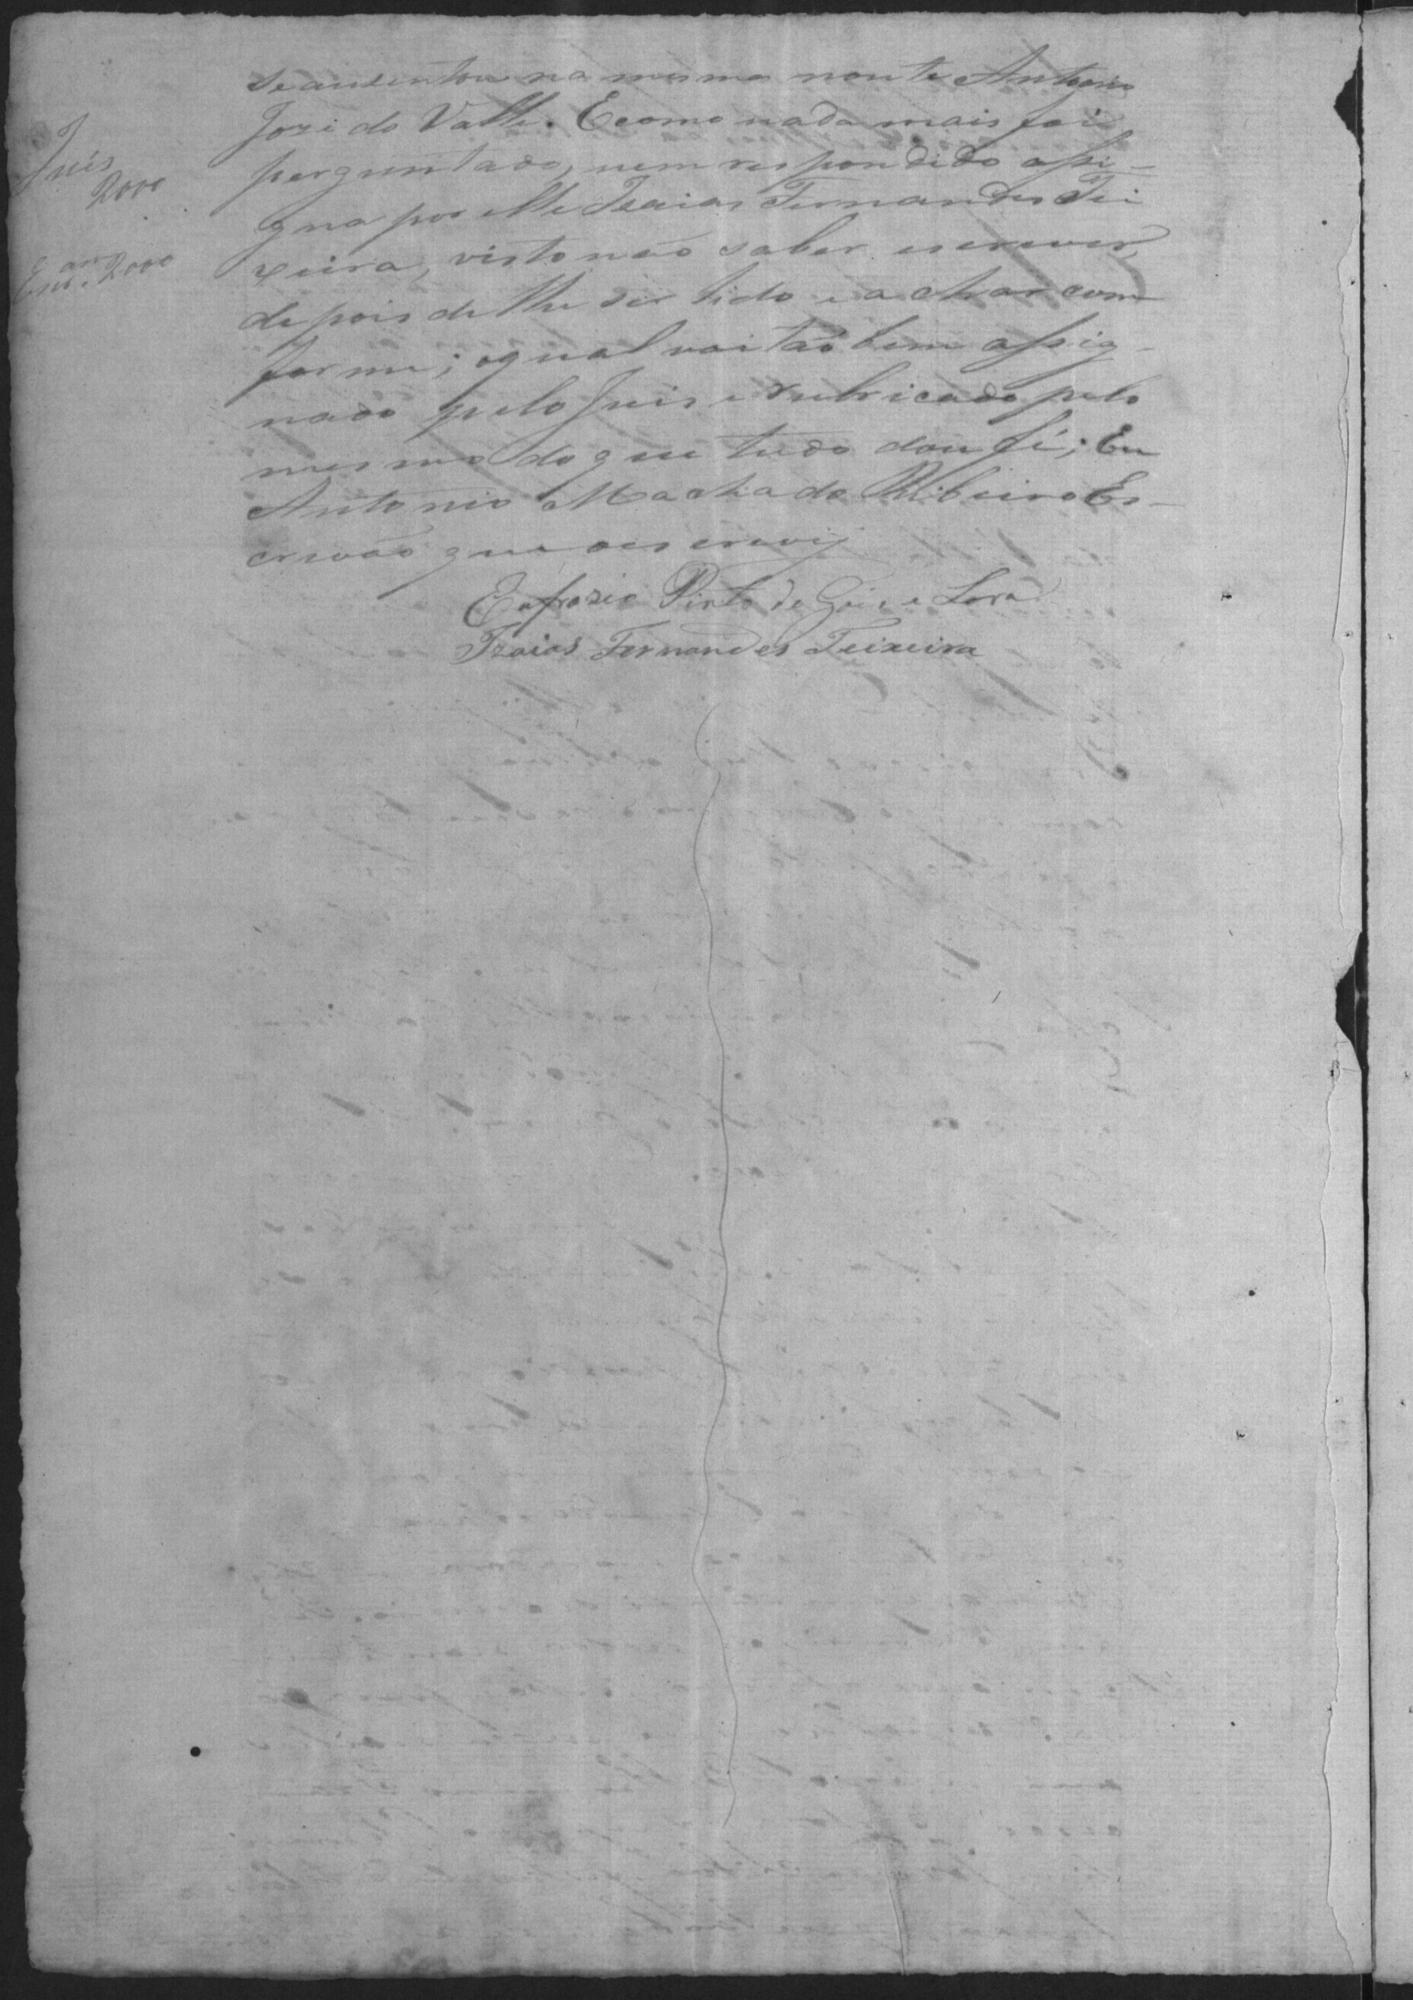 Juis
2000
Escr.am 2000
se auzentou na mesma noute Antonio
Jozé do Valle. E como nada mais foi
perguntado, nem respondido assi-
gna por elle Izaias Fernandes Tei
xeira, visto não saber escrever,
depois de lhe ser lido e achar con
forme; o qual vai tão bem assig-
nado pelo Juis e rubricado pelo
mesmo do que tudo dou fé; Eu
Antonio Machado Ribeiro Es-
crivão que o escrevy
Eufrazio Pinto de Góis e Lara
Izaias Fernandes Teixeira